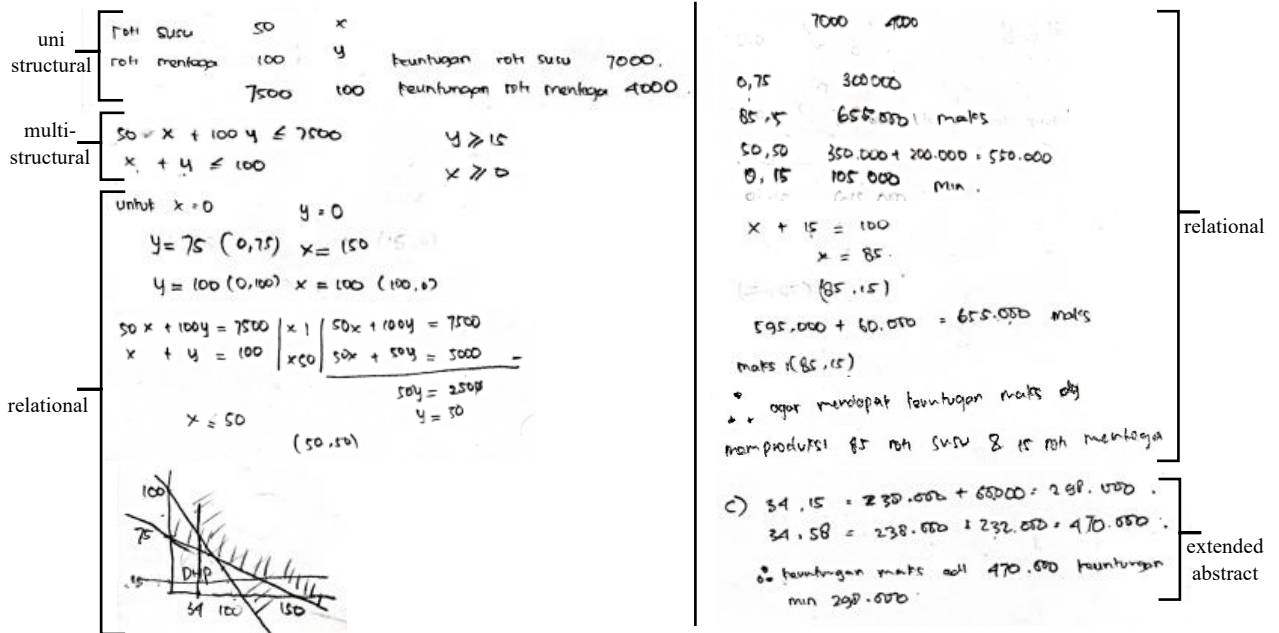 uni
structural
roti susu 50 x
roti mentega 100 y keuntugan roti susu 7000.
7500 100 keuntungan roti mentega 4000
multi-
structural
50 x + 100 y ≤ 7500 y ≥ 15
x + y ≤ 100 x ≥ 0
relational
untuk x = 0 y = 0
y = 75 (0,75) x = 150
y = 100 (0,100) x = 100 (100,0)
50x + 100y = 7500 | x 1 | 50x + 100y = 7500
x + y = 100 | x50 | 50x + 50y = 5000 -
50y = 2500
x = 50 y = 50
(50,50)
100
75
15 DHP
34 100 150
7000 4000
0,75 300000
85,15 655.000 maks
50,50 350.000 + 200.000 = 550.000
0,15 105.000 min.
x + 15 = 100
x = 85.
(85,15)
595.000 + 60.000 = 655.000 maks
maks (85,15)
∴ agar mendapat keuntugan maks dg
memproduksi 85 roti susu & 15 roti mentega
relational
c) 34,15 = 238.000 + 60000 = 298.000.
34,58 = 238.000 + 232.000 = 470.000.
∴ keuntungan maks adl 470.000 keuntungan
min 298.000
extended
abstract